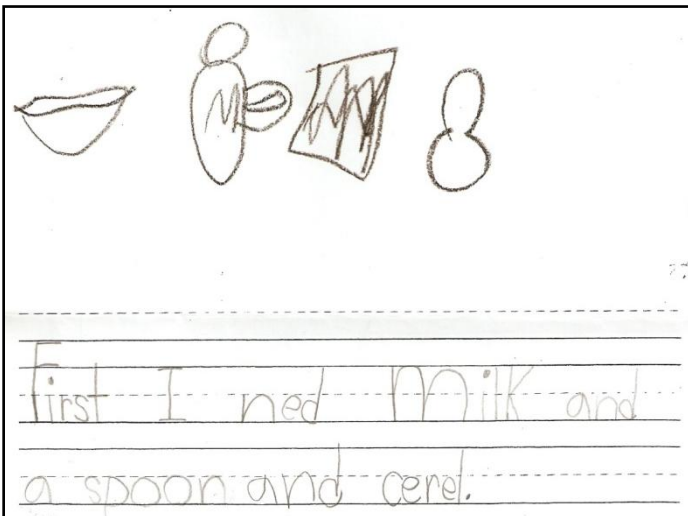 M
First I ned Milk and
a spoon and cerel.